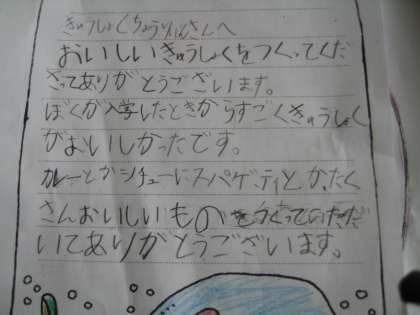 きゅうしょくちょうりいんさんへ
おいしいきゅうしょくをつくってくだ
さってありがとうございます。
ぼくが入学したときからすごくきゅうしょく
がおいしかったです。
カレーとかシチューにスパゲッティとか、たく
さんおいしいものをつくっていただ
いてありがとうございます。